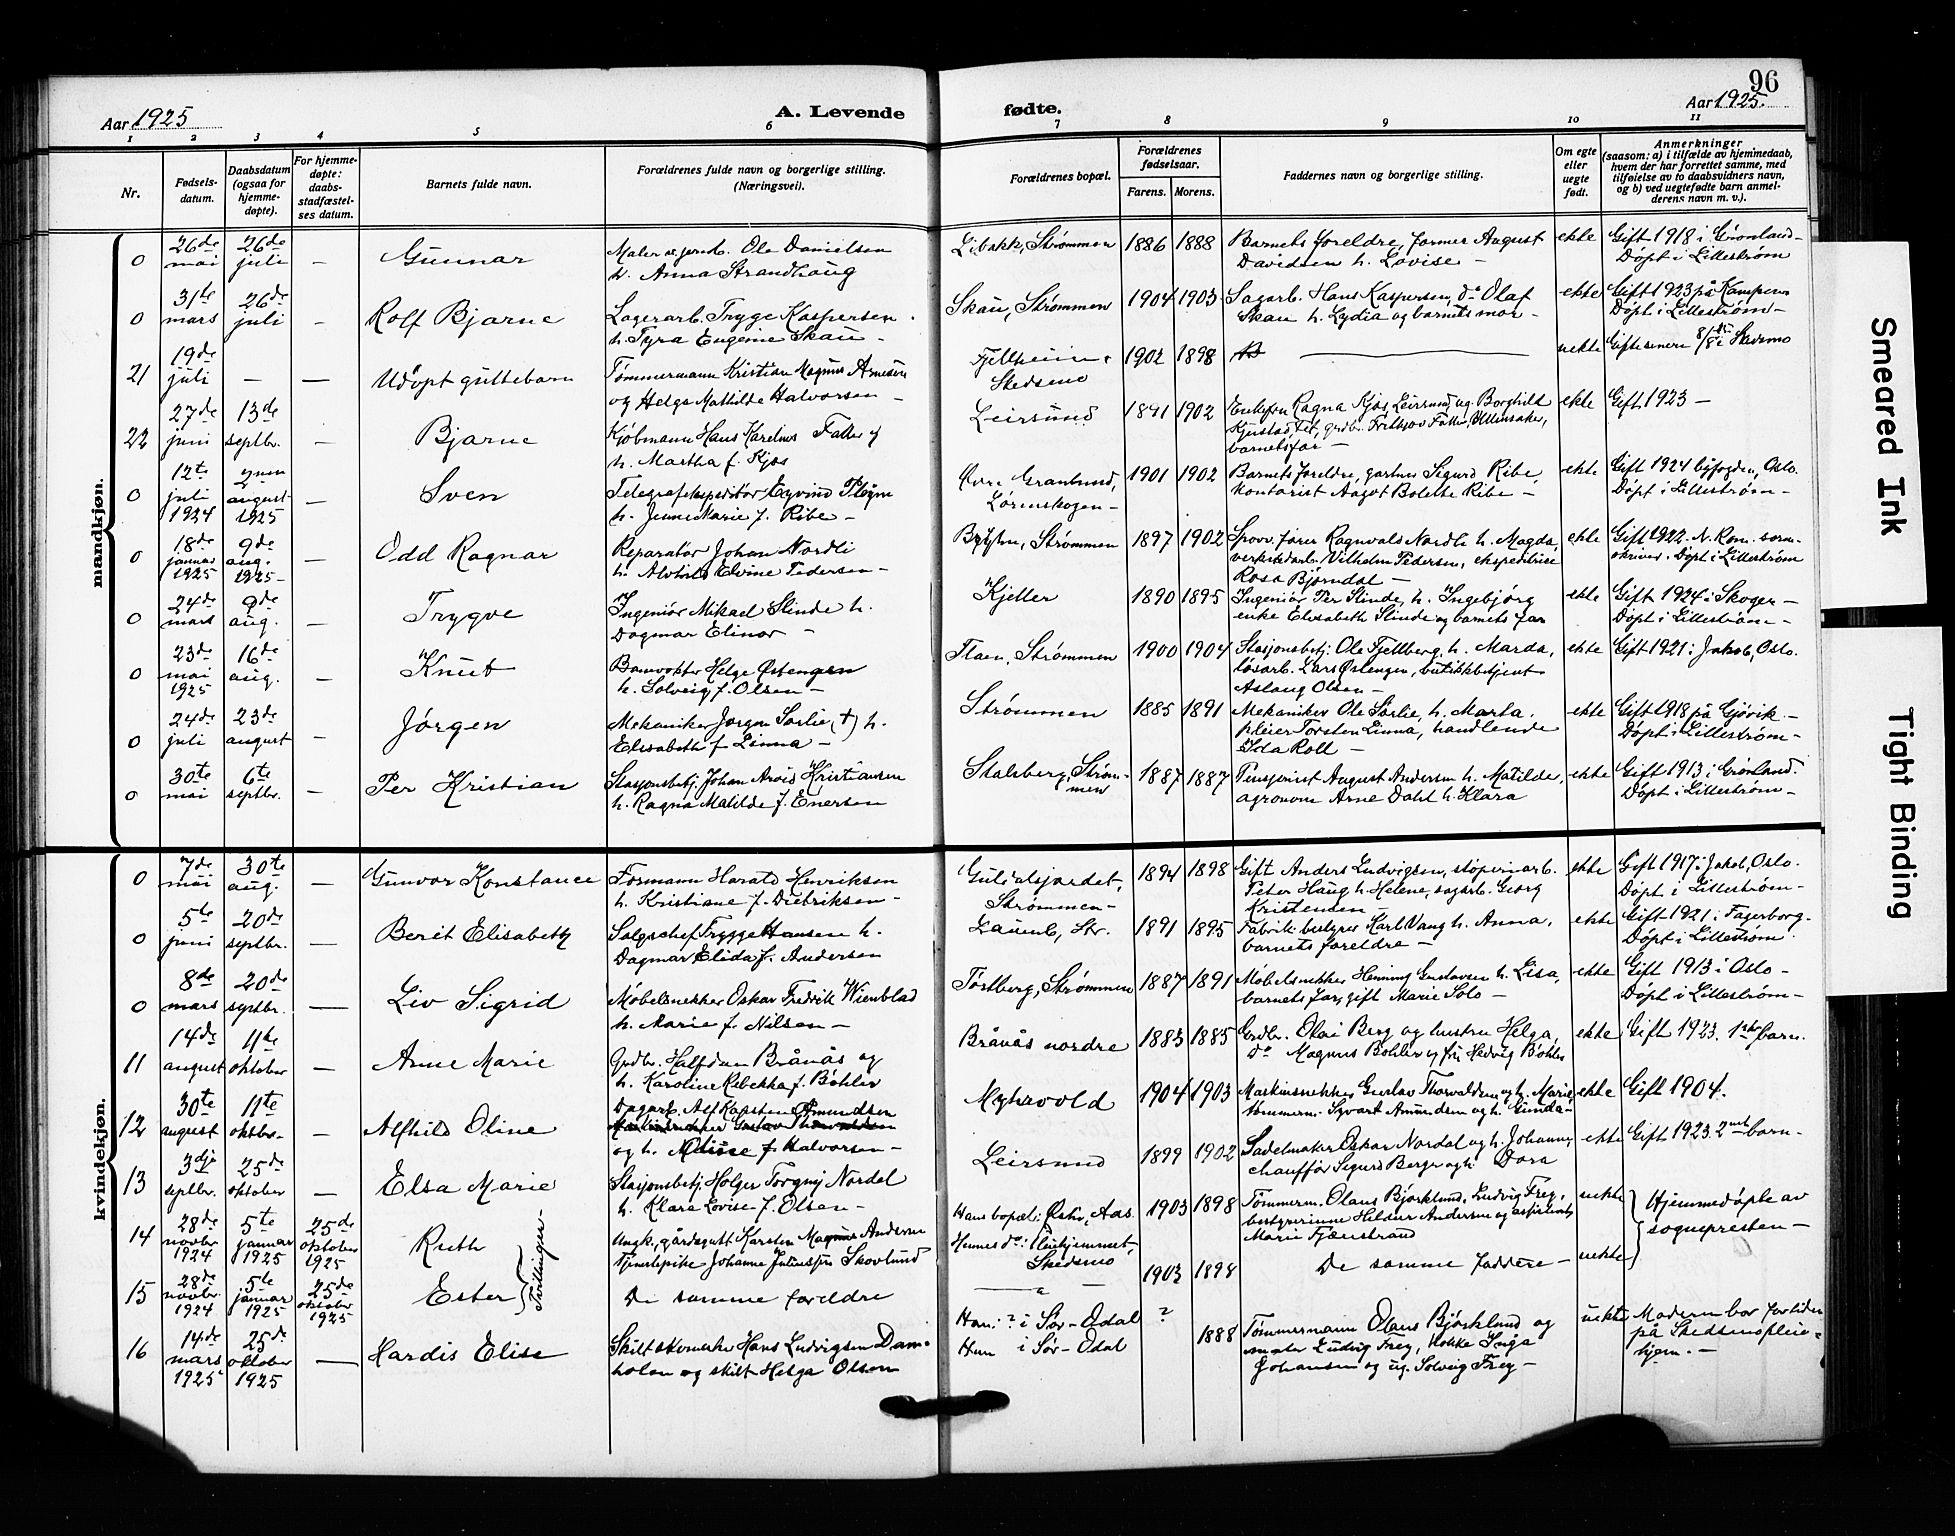 96
Aar 1925
A. Levende
fødte.
Aar 1925.
1 2 3 4 5 6 7 8 9 10 11
Nr.
Fødsels-
datum.
Daabsdatum
(ogsaa for
hjemme-
døpte).
For hjemme-
døpte:
daabs-
stadfæstel-
ses datum.
Barnets fulde navn.
Forældrenes fulde navn og borgerlige stilling.
(Næringsvei).
Forældrenes bopæl.
Forældrenes
fødselsaar.
Farens. Morens.
Faddernes navn og borgerlige stilling.
Om egte
eller
uegte
født.
Anmerkninger
(saasom: a) i tilfælde av hjemmedaab,
hvem der har forrettet samme, med
tilføielse av to daabsvidners navn,
og b) ved uegtefødte barn anmel-
derens navn m. v.).
mandkjøn.
0 26de mai 26de juli — Gunnar
Maler Ole Danielsen
h. Anna Strandhaug
Libakk, Strømmen 1886 1888
Barnets foreldre, former August
Davidsen h. Lovise —
ekte
Gift 1918 i Grønland —
Døpt i Lillestrøm
0 31te mars 26de juli — Rolf Bjarne
Lagerarb. Trygve Kaspersen
h. Tyra Eugenie Skau —
Skau, Strømmen 1904 1903
Sagarb. Hans Kaspersen, do Olaf
Skau h. Lydia og barnets mor —
ekte
Gift 1923 på Kampen
Døpt i Lillestrøm —
21 19de juli — — Udøpt guttebarn
Tømmermann Kristian Magnus Arnesen
og Helga Mathilde Halvorsen —
Fjellheim
Skedsmo
1902 1898
uekte
Gift senere 8/8 i Skedsmo
22 27de juni 13de septbr. — Bjarne
Kjøbmann Hans Karelius Faller
h. Martha f. Kjos
Leirsund 1891 1902
Enkefru Ragna Kjos, Leirsund, ug. Borghild
Kjustad, grdbr. Frithjov Faller, Ullensaker,
barnets far —
ekte
Gift 1923 —
0 12te juli 1924 2nen august 1925 — Sven
Telegrafekspeditør Eyvind Pleym
h. Jenni Marie f. Ribe —
Øvre Granlund,
Lørenskogen —
1901 1902
Barnets foreldre, gartner Sigurd Ribe,
kontorist Aagot Bolette Ribe —
ekte
Gift 1924 byfogden, Oslo.
Døpt i Lillestrøm —
0 18de januar 1925 9de aug. 1925 — Odd Ragnar
Reparatør Johan Nordli
h. Alvhild Elvine Pedersen —
Strømmen 1897 1902
Sporv.fører Ragnvald Nordli h. Magda,
verkstedarb. Vilhelm Pedersen, ekspeditrise
Rosa Bjørndal —
ekte
Gift 1922 N. Rom. soren-
skriver. Døpt i Lillestrøm
0 24de mars 9de aug. — Trygve
Ingeniør Mikael Slinde h.
Dagmar Elinor —
Kjeller 1890 1895
Ingeniør Per Slinde, h. Ingebjørg
enke Elisabeth Slinde og barnets far
ekte
Gift 1924 i Skoger —
Døpt i Lillestrøm —
0 23de mai 1925 16de aug. — Knut
Banvokter Helge Østengen
h. Solveig f. Olsen —
Flaen, Strømmen 1900 1904
Stasjonsbetj. Ole Fjellberg, h. Marda,
løsarb. Lars Østengen, butikkbetjent
Aslaug Olsen —
ekte
Gift 1921 i Jakob, Oslo.
0 24de juli 23de august — Jørgen
Mekaniker Jørgen Sørlie (†) h.
Elisabeth f. Linna —
Strømmen 1885 1891
Mekaniker Ole Sørlie, h. Marta.
pleier Torsten Linna, handlende
Ida Roll —
ekte
Gift 1918 på Gjøvik —
Døpt i Lillestrøm —
0 30te mai 6te septbr. — Per Kristian
Stasjonsbetj. Johan Arvid Kristiansen
h. Ragna Matilde f. Enersen
Stalsberg, Strøm-
men
1887 1887
Pensjonist August Andersen h. Matilde,
agronom Arne Dahl h. Klara
ekte
Gift 1913 i Grønland.
Døpt i Lillestrøm —
kvindekjøn.
0 7de mai 30te aug. — Gunvor Konstance
Formann Harald Henriksen
h. Kristiane f. Dietriksen —
Strømmen —
1894 1898
Gift Anders Ludvigsen, støperiarb.
Peter Haug h. Helene, sagarb. Georg
Kristensen —
ekte
Gift 1917 i Jakob, Oslo.
Døpt i Lillestrøm —
0 5te juni 20de septbr. — Berit Elisabeth
Salgschef Trygve Hansen h.
Dagmar Elida f. Andersen
Str. 1891 1895
Fabrikbestyrer Karl Vang h. Anna,
barnets foreldre —
ekte
Gift 1921 i Fagerborg.
Døpt i Lillestrøm.
0 8de mars 20de septbr. — Liv Sigrid
Møbelsnekker Oskar Fredrik Wienblad
h. Marie f. Nilsen —
Tørtberg, Strømmen 1887 1891
Møbelsnekker Henning Gustavsen h. Lisa,
barnets far, gift Marie Solo —
ekte
Gift 1913 i Oslo —
Døpt i Lillestrøm —
11 14de august 11te oktober — Anne Marie
Grdbr. Halfdan Brånås og
h. Karoline Rebekka f. Bøhler
Brånås nordre 1883 1885
Grdbr. Olai Berg og hustru Helga,
do Magnus Bøhler og fru Hedvig Bøhler
ekte
Gift 1923. 1ste barn.
12 30te august 11te oktbr. — Alfhild Oline
Dagarb. Alf Karsten Amundsen
og h. Marie f. Halvorsen —
Myhrvold 1904 1903
Maskinsnekker Gustav Thorvaldsen og h. Marie,
tømmerm. Syvart Amundsen og h. Gunda —
ekte
Gift 1904.
13 3dje septbr. 25de oktober — Elsa Marie
Stasjonsbetj. Holger Torgny Nordal
h. Klara Lovise f. Olsen —
Leirsund 1899 1902
Sadelmaker Oskar Nordal og h. Johanne,
chauffør Sigurd Berger og h. Dora
ekte
Gift 1923. 2net barn —
14 28de novbr. 1924 5te januar 1925 25de oktober 1925 Ruth
Ungk., gårdsgutt Karsten Magnus Andersen
Tjenestepike Johanne Juliusdtr. Skovlund
Hans bopæl: Østre, Aas
Hennes do: Pleiehjemmet,
Skedsmo
1903 1898
Tømmerm. Olaus Bjørklund, Ludvig Frey,
bestyrerinne Helder Andersen og aspirant
Marie Fjænstrand
uekte
Hjemmedøpte av
sognepresten —
Tvillinger —
15 28de novbr. 1924 5te januar 1925 25de oktober 1925 Ester
De samme foreldre
— 1903 1898
De samme faddere —
uekte
16 14de mars 1925 25de oktober 1925 — Hardis Elise
Skilt skomaker Hans Ludvigsen Dam-
holen og skilt Helga Olsen
Han: ? i Sør-Odal
Hun i Sør-Odal
? 1888
Tømmermann Olaus Bjørklund og
maler Ludvig Frey, kokke Inga
Johansen og ug. Solveig Frey —
uekte
Moderen bor fortiden
på Skedsmo pleie-
hjem. —
Smeared Ink
Tight Binding